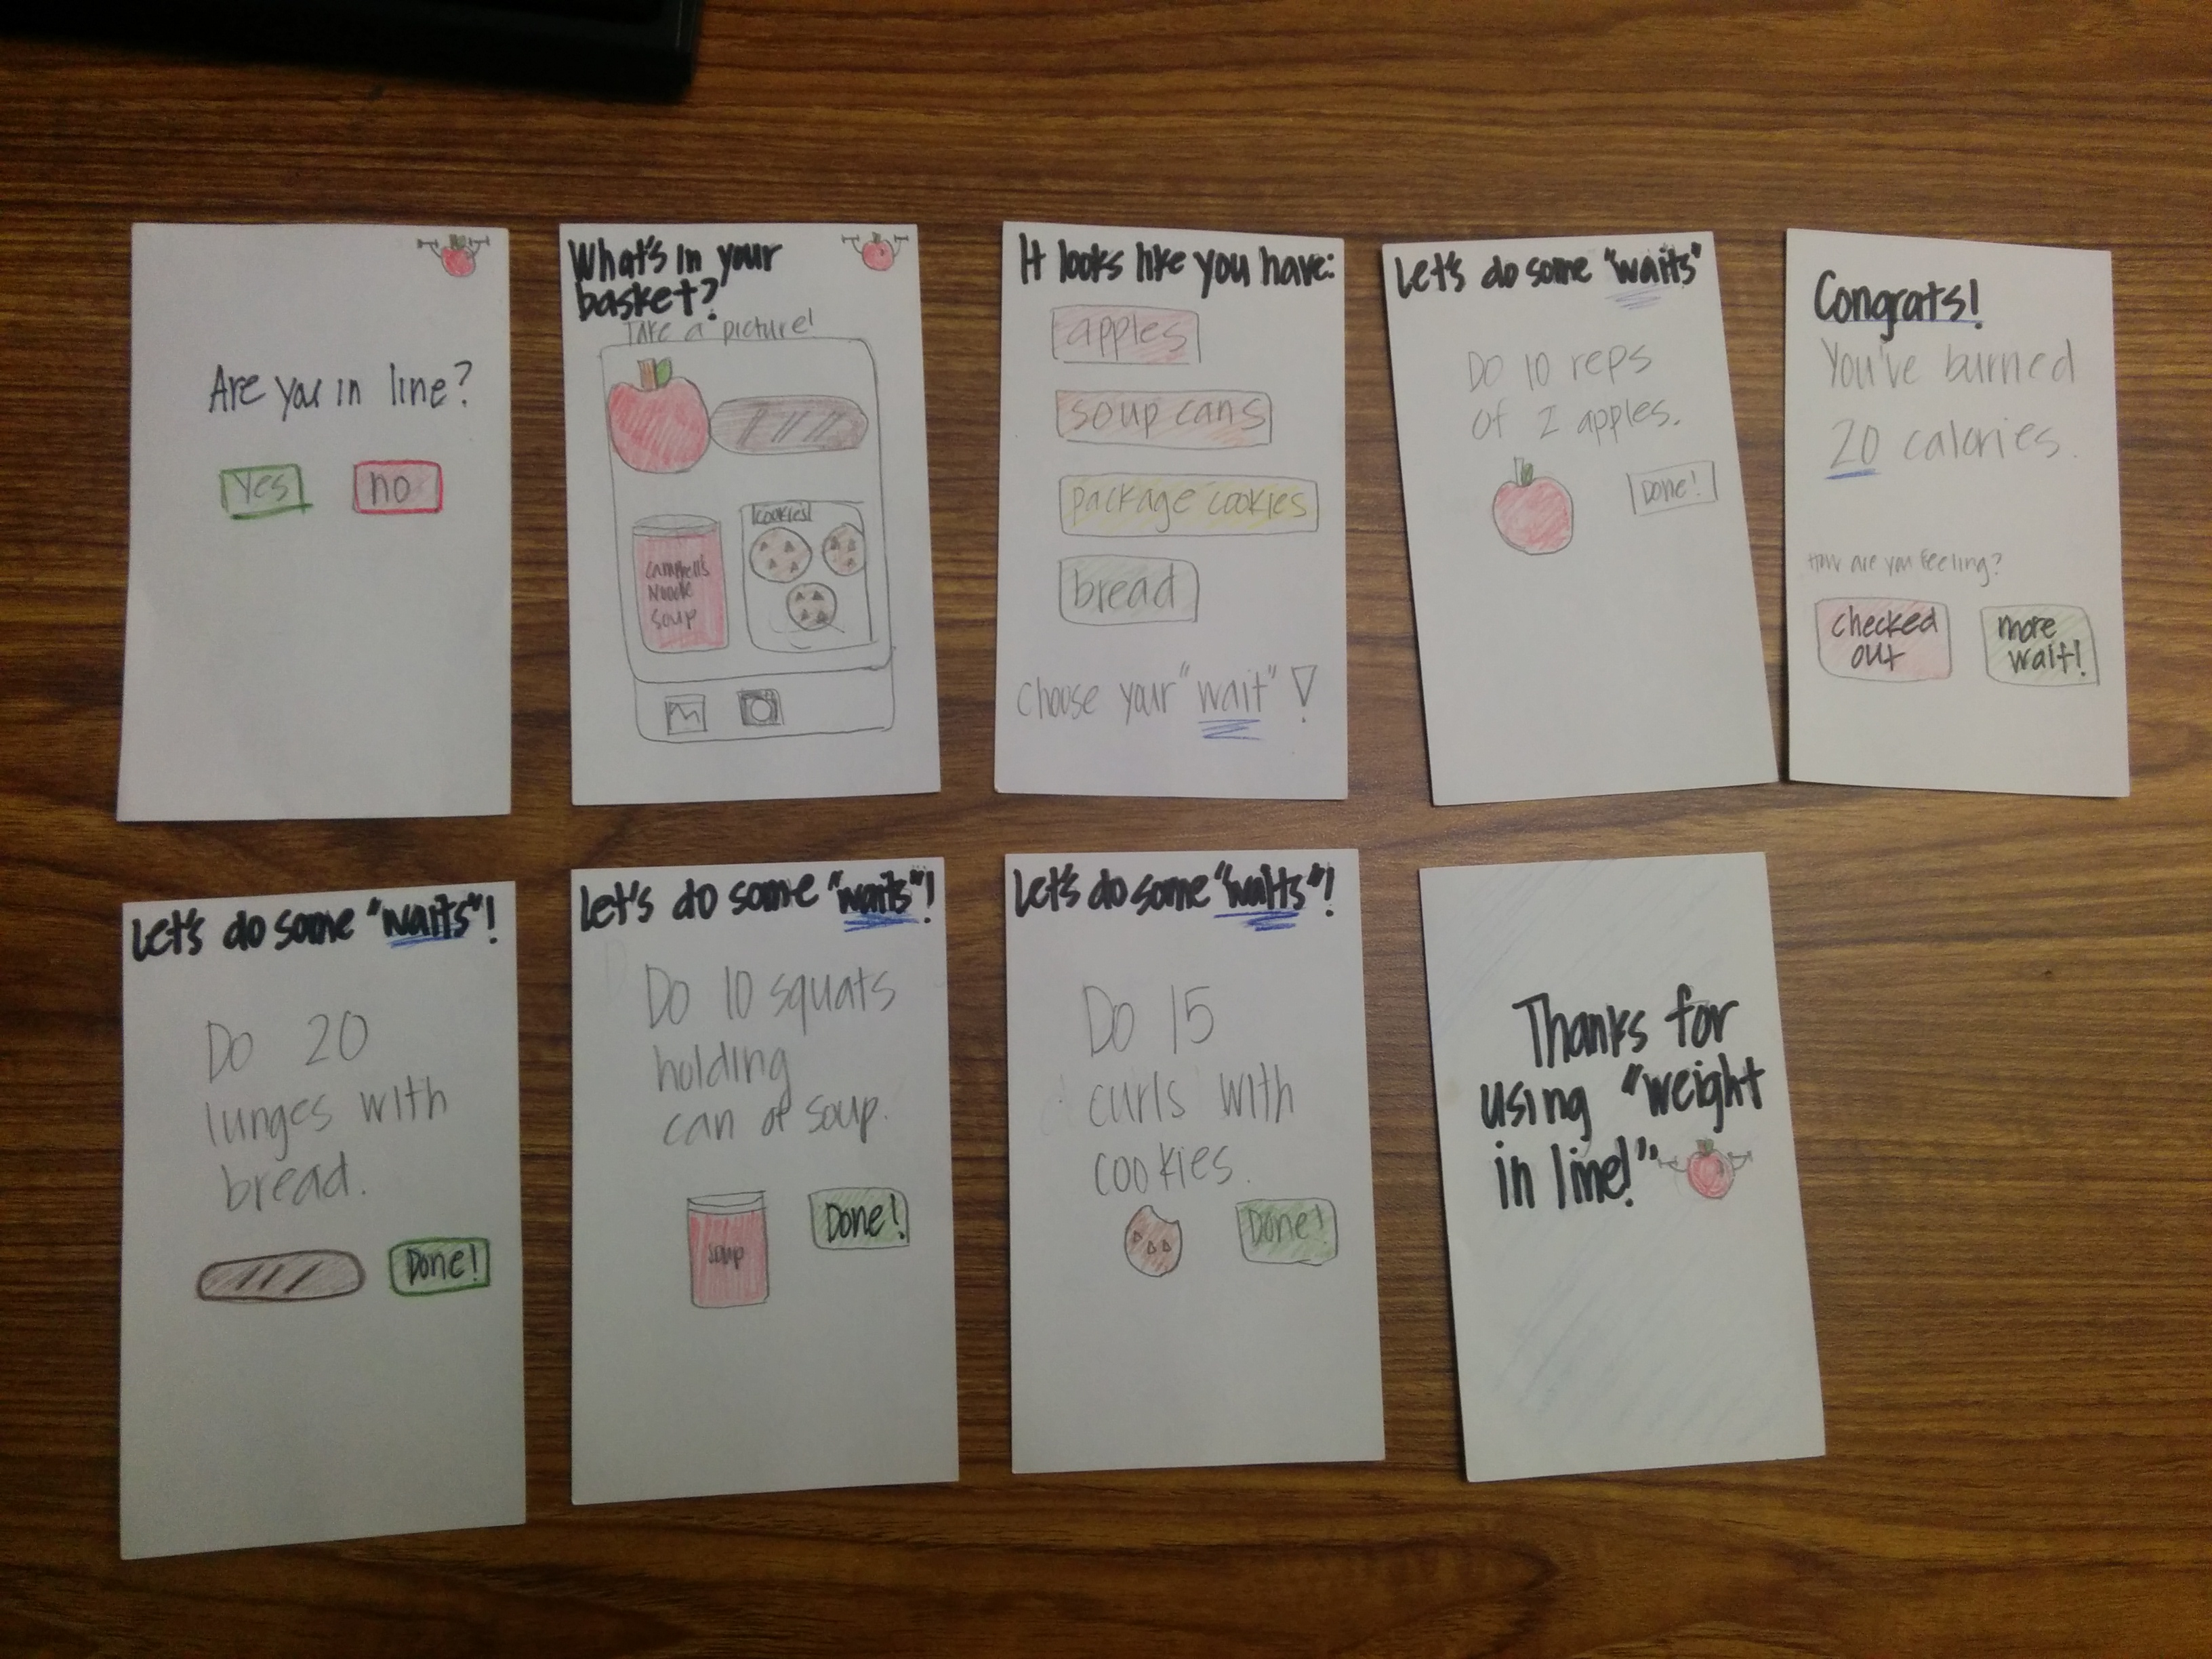 Are you in line?
yes
no
What's in your
basket?
Take a picture!
Campbell's
Noodle
Soup
cookies
It looks like you have:
apples
soup cans
package cookies
bread
choose your "wait"!
Let's do some "waits"
Do 10 reps
of 2 apples.
Done!
Congrats!
You've burned
20 calories.
How are you feeling?
checked
out
more
wait!
Let's do some "waits"!
Do 20
lunges with
bread.
Done!
Let's do some "waits"!
Do 10 squats
holding
can of soup.
soup
Done!
Let's do some "waits"!
Do 15
curls with
cookies.
Done!
Thanks for
using "weight
in line!"